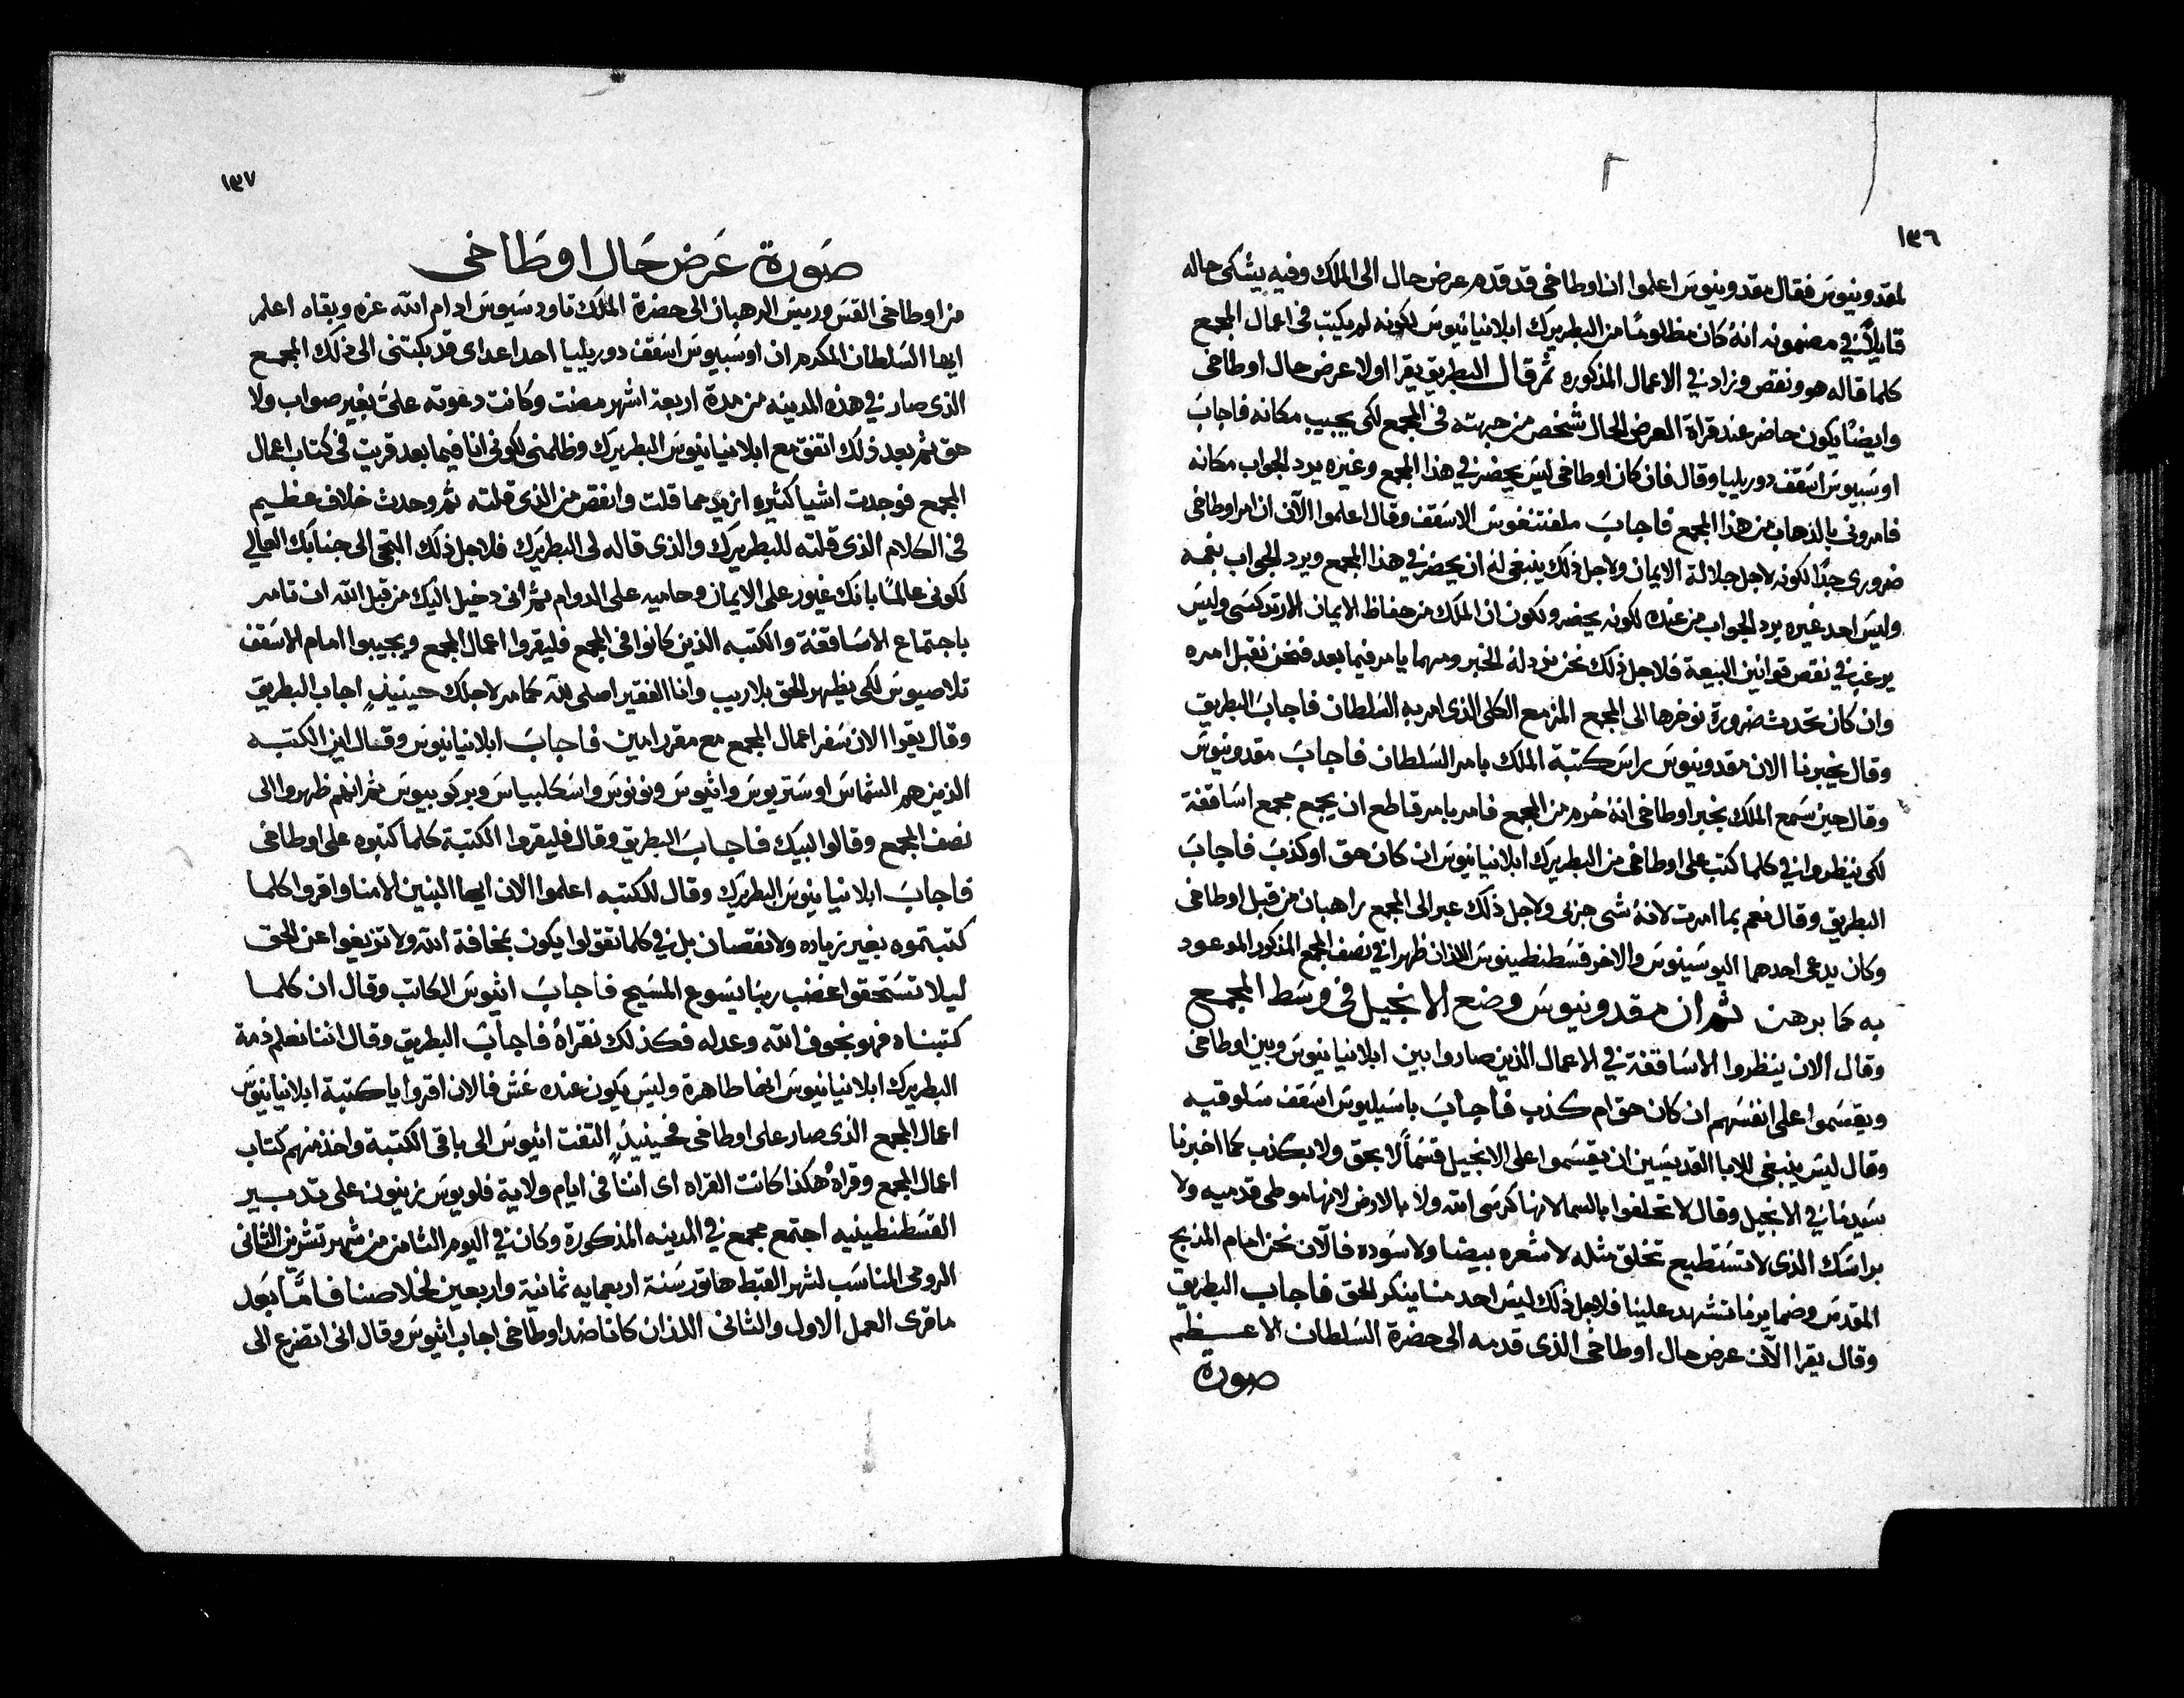 ١٣٦
لمقدونيوس فقال مقدونيوس اعلموا ان اوطاخي قد قدم عرض حال الى الملك وفيه يشكى حاله
قايلاً في مضمونه انهُ كان مظلومًا من البطريرك ابلانيانيوس لكونه لم يكتب في اعمال المجمع
كلما قاله هو ونقص وزاد في الاعمال المذكوره ثم قال البطريق يقرا اولا عرض حال اوطاخي
وايضًا يكون حاضر عند قراة العرض الحال شخص من جهته في المجمع لكي يجيب مكانه فاجاب
اوسبيوس اسقف دوريليا وقال فان كان اوطاخي ليس يحضر في هذا المجمع وغيره يرد الجواب مكانه
فامروني بالذهاب من هذا المجمع فاجاب ملفتنغوس الاسقف وقال اعلموا الآن ان امر اوطاخي
ضروري جدًا لكونه لاجل جلالة الايمان ولاجل ذلك ينبغي له ان يحضر في هذا المجمع ويرد الجواب بفمه
وليس احد غيره يرد الجواب من عنده لكونه يحضر ولكون ان الملك من حفاظ الايمان الارتدكسي وليس
يرغب في نقص قوانين البيعة فلاجل ذلك نحن نرد له الخبر ومهما يامر فيما بعد فنحن نقبل امره
وان كان تحدث ضرورة نوخرها الى المجمع المزمع الكلي الذي امر به السلطان فاجاب البطريق
وقال يخبرنا الان مقدونيوس راس كتبة الملك بامر السلطان فاجاب مقدونيوس
وقال حين سمع الملك بخبر اوطاخي انهُ حُرم من المجمع فامر بامر قاطع ان يجمع مجمع اساقفة
لكي ينظروا في كلما كتب على اوطاخي من البطريرك ابلانيانيوس ان كان حق او كذب فاجاب
البطريق وقال نعم بما امرت لانهُ شي جزيي ولاجل ذلك عبر الى المجمع راهبان من قبل اوطاخي
وكان يدعى احدهما اليوسينوس والاخر قسطنطينوس اللذان ظهرا في نصف المجمع المذكور الموعود
به كما برهن ثم ان مقدونيوس وضع الانجيل في وسط المجمع
وقال الان ينظروا الاساقفة في الاعمال الذين صاروا بين ابلانيانيوس وبين اوطاخي
ويقسموا على انفسهم ان كان حق ام كذب فاجاب باسيليوس اسقف سلوقيه
وقال ليس ينبغي للابا القديسين ان يقسموا على الانجيل قسماً لا بحق ولا بكذب كما اخبرنا
سيدنا في الانجيل وقال لا تحلفوا بالسما لانها كرسي الله ولا بالارض لانها موطى قدميه ولا
براسك الذي لا تستطيع تخلق مثله لا شعره بيضا ولا سوده فالآن نحن امام المذبح
المقدس وضمايرنا تشهد علينا فلاجل ذلك ليس احد منا ينكر الحق فاجاب البطريق
وقال يقرا الآن عرض حال اوطاخي الذي قدمه الى حضرة السلطان الاعظم
صورة
١٣٧
صورة عرض حال اوطاخي
من اوطاخي القس وريس الرهبان الى حضرة الملك تاودسيوس ادام الله عزه وبقاه اعلم
ايها السلطان المكرم ان اوسبيوس اسقف دوريليا احد اعداي قد بكتني الى ذلك المجمع
الذي صار في هذه المدينه من مدة اربعة اشهر مضت وكانت دعوته عليَّ بغير صواب ولا
حق ثم بعد ذلك اتفق مع ابلانيانيوس البطريرك وظلمني لكوني انا فيما بعد قريت في كتاب اعمال
المجمع فوجدت اشيا كثيره ازيد مما قلت وانقص من الذي قلته ثم وحدث خلاف عظيم
في الكلام الذي قلته للبطريرك والذي قاله لي البطريرك فلاجل ذلك التجي الى جنابك العالي
لكوني عالمًا بانك غيور على الايمان وحاميه على الدوام ثم اني دخيل اليك من قبل الله ان تامر
باجتماع الاساقفة والكتبه الذين كانوا في المجمع فليقروا اعمال المجمع ويجيبوا امام الاسقف
تلاصيوس لكي يظهر الحق بلا ريب وانا الفقير اصلي لله كما مر لاجلك حينيذٍ اجاب البطريق
وقال يقوا الان سفر اعمال المجمع مع مقرر امين فاجاب ابلانيانيوس وقال اين الكتبه
الذين هم الشماس اوستريوس واثيوس ونونوس واسكلبياس وبركوبيوس ثم انهم ظهروا الى
نصف المجمع وقالوا لبيك فاجاب البطريق وقال فليقروا الكتبة كلما كتبوه على اوطاخي
فاجاب ابلانيانيوس البطريرك وقال للكتبه اعلموا الان ايها البنين الامنا واقروا كلما
كتبتموه بغير زياده ولا نقصان بل في كلما تقولوا يكون بمخافة الله ولا تزيغوا عن الحق
ليلا تستحقوا غضب ربنا يسوع المسيح فاجاب اثيوس الكاتب وقال ان كلما
كتبناه فهو بخوف الله وعدله فكذلك نقراهُ فاجاب البطريق وقال اننا نعلم ذمة
البطريرك ابلانيانيوس انها طاهرة وليس يكون عنده غش فالان اقروا يا كتبة ابلانيانيوس
اعمال المجمع الذي صار على اوطاخي فحينيذٍ التفت اثيوس الى باقي الكتبة واخذ منهم كتاب
اعمال المجمع وقراهُ هكذا كانت القراه اى اننا في ايام ولاية فلوبوس زينون على تدبير
القسطنطينيه اجتمع مجمع في المدينه المذكورة وكان في اليوم الثامن من شهر تشرين الثاني
الرومي المناسب لشهر القبط هاتور سنة اربعمايه ثمانية واربعين لخلاصنا فامَّا بعد
ما قرى العمل الاول والثاني اللذان كانا ضد اوطاخي اجاب اثيوس وقال اني اتضرع الى